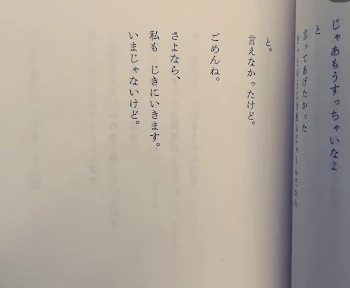 じゃあもうすっちゃいなよ
と
言ってあげたかった
と。
言えなかったけど。
ごめんね。
さよなら、
私も じきにいきます。
いまじゃないけど。